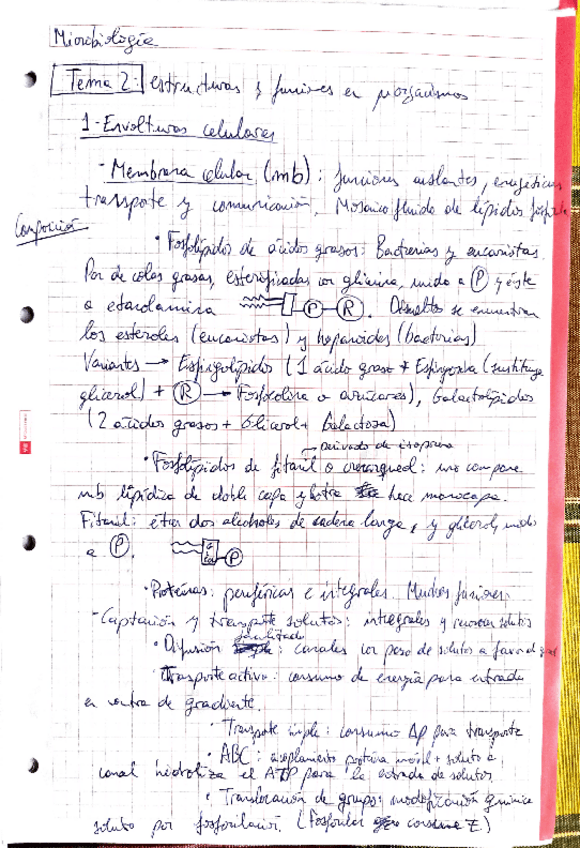 Microbiología
Tema 2: estructuras y funciones en μorganismos
1-Envolturas celulares
· Membrana celular (mb): funciones aislantes, energéticas
transporte y comunicación. Mosaico fluido de lípidos
Composición
· Fosfolípidos de ácidos grasos: Bacterias y eucariotas.
Par de colas grasas, esterificadas con glicerina, unido a P y éste
a etanolamina P R. Disueltos se encuentran
los esteroles (eucariotas) y hopanoides (bacterias)
Variantes → Esfingolípidos (1 ácido graso + Esfingosina (sustituye
glicerol) + R → Fosfocolina o azúcares), Galactolípidos
(2 ácidos grasos + Glicerol + Galactosa)
Derivado de isopreno
· Fosfolípidos de fitanil o crenarqueol: uno compone
mb lipídica de doble capa y hace monocapa.
Fitanil: éter dos alcoholes de cadena larga, y glicerol, unido
a P. P
· Proteínas: periféricas e integrales. Muchas funciones:
- Captación y transporte solutos: integrales y solutos
facilitada
· Difusión : canales con paso de solutos a favor de
· Transporte activo: consumo de energía para entrada
en contra de gradiente.
· Transporte simple: consumo Δp para transporte
· ABC: acoplamiento proteína móvil + soluto a
canal hidroliza el ATP para la entrada de solutos
· Translocación de grupos: modificación química
soluto por fosforilación. (Fosforilar consume E.)